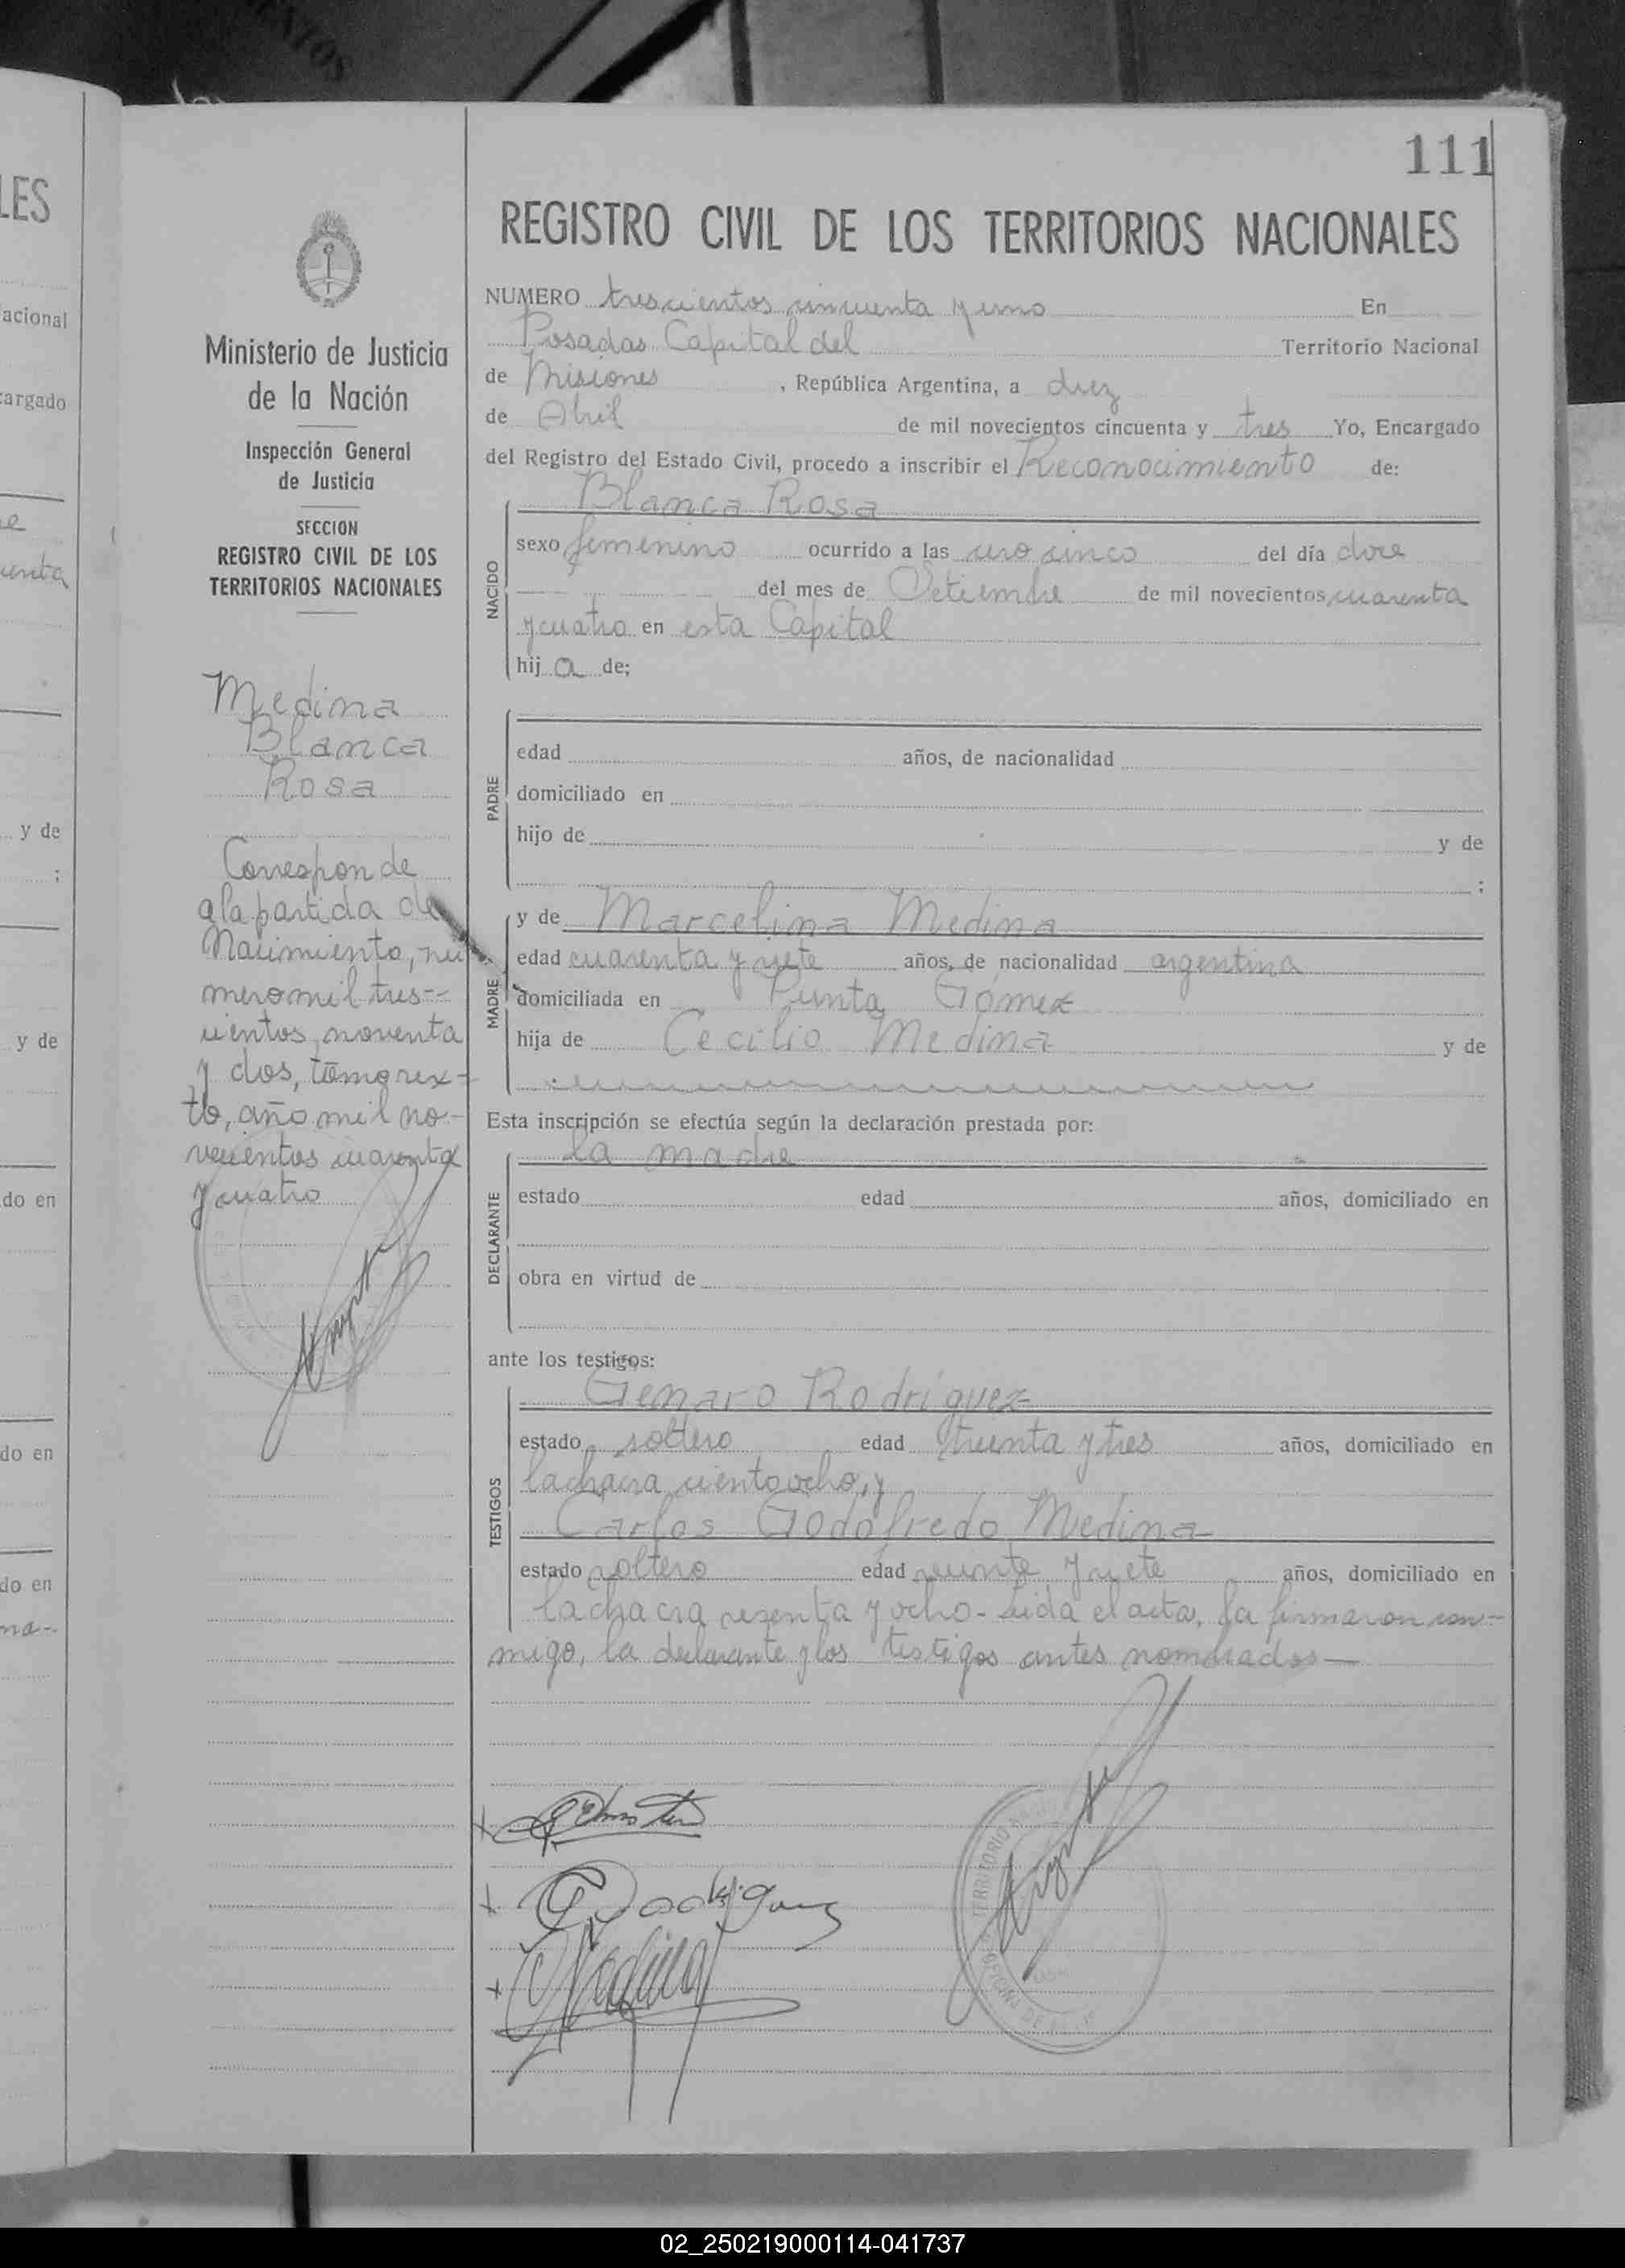 111
REGISTRO CIVIL DE LOS TERRITORIOS NACIONALES
Ministerio de Justicia
de la Nación
Inspección General
de Justicia
SECCION
REGISTRO CIVIL DE LOS
TERRITORIOS NACIONALES
Medina
Blanca
Rosa
Corresponde
a la partida de
Nacimiento, nú
mero mil tres--
cientos, noventa
y dos, tomo sex-
to, año mil no-
vecientos cuarenta
y cuatro
NUMERO trescientos cincuenta y uno En
Posadas Capital del Territorio Nacional
de Misiones , República Argentina, a diez
de Abril de mil novecientos cincuenta y tres Yo, Encargado
del Registro del Estado Civil, procedo a inscribir el Reconocimiento de:
NACIDO
Blanca Rosa
sexo femenino ocurrido a las cinco del día doce
del mes de Setiembre de mil novecientos cuarenta
y cuatro en esta Capital
hij a de;
PADRE
edad años, de nacionalidad
domiciliado en
hijo de y de
;
MADRE
y de Marcelina Medina
edad cuarenta y siete años, de nacionalidad argentina
domiciliada en Punta Gómez
hija de Cecilio Medina y de
Esta inscripción se efectúa según la declaración prestada por:
DECLARANTE
la madre
estado edad años, domiciliado en
obra en virtud de
ante los testigos:
TESTIGOS
Genaro Rodríguez
estado soltero edad treinta y tres años, domiciliado en
la chacra ciento ocho, y
Carlos Godofredo Medina
estado soltero edad veinte y siete años, domiciliado en
la chacra sesenta y ocho- Leida el acta, la firmaron con-
migo, la declarante y los testigos antes nombrados—
LES
acional
cargado
y de
;
y de
do en
do en
do en
02_250219000114-041737